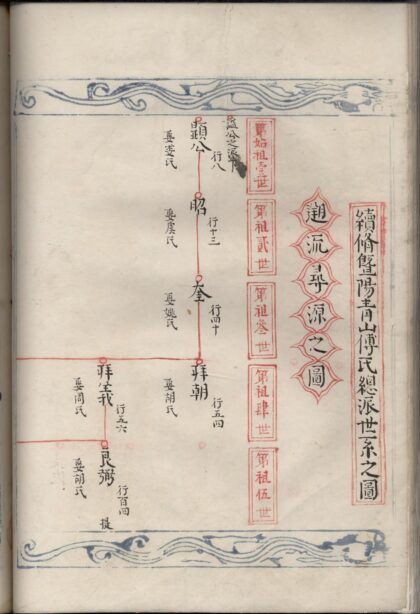 續脩暨陽青山傅氏總派世系之圖
遡流尋源之圖
第始祖壹世
第祖貳世
第祖叁世
第祖肆世
第祖伍世
顯公
行八
娶婁氏
昭
行十三
娶虞氏
奎
行四十
娶姚氏
拜朝
行五四
娶胡氏
拜聖我
行五六
娶周氏
良弼
行百四
娶胡氏